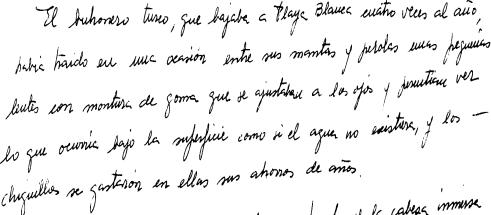 El buhonero turco, que bajaba a Playa Blanca cuatro veces al año,
había traído en una ocasión entre sus mantas y perolas unas pequeñas
lentes con montura de goma que se ajustaban a los ojos y permitían ver
lo que ocurría bajo la superficie como si el agua no existiera, y los -
chiquillos se gastaron en ellas sus ahorros de años.
la cabeza inmersa